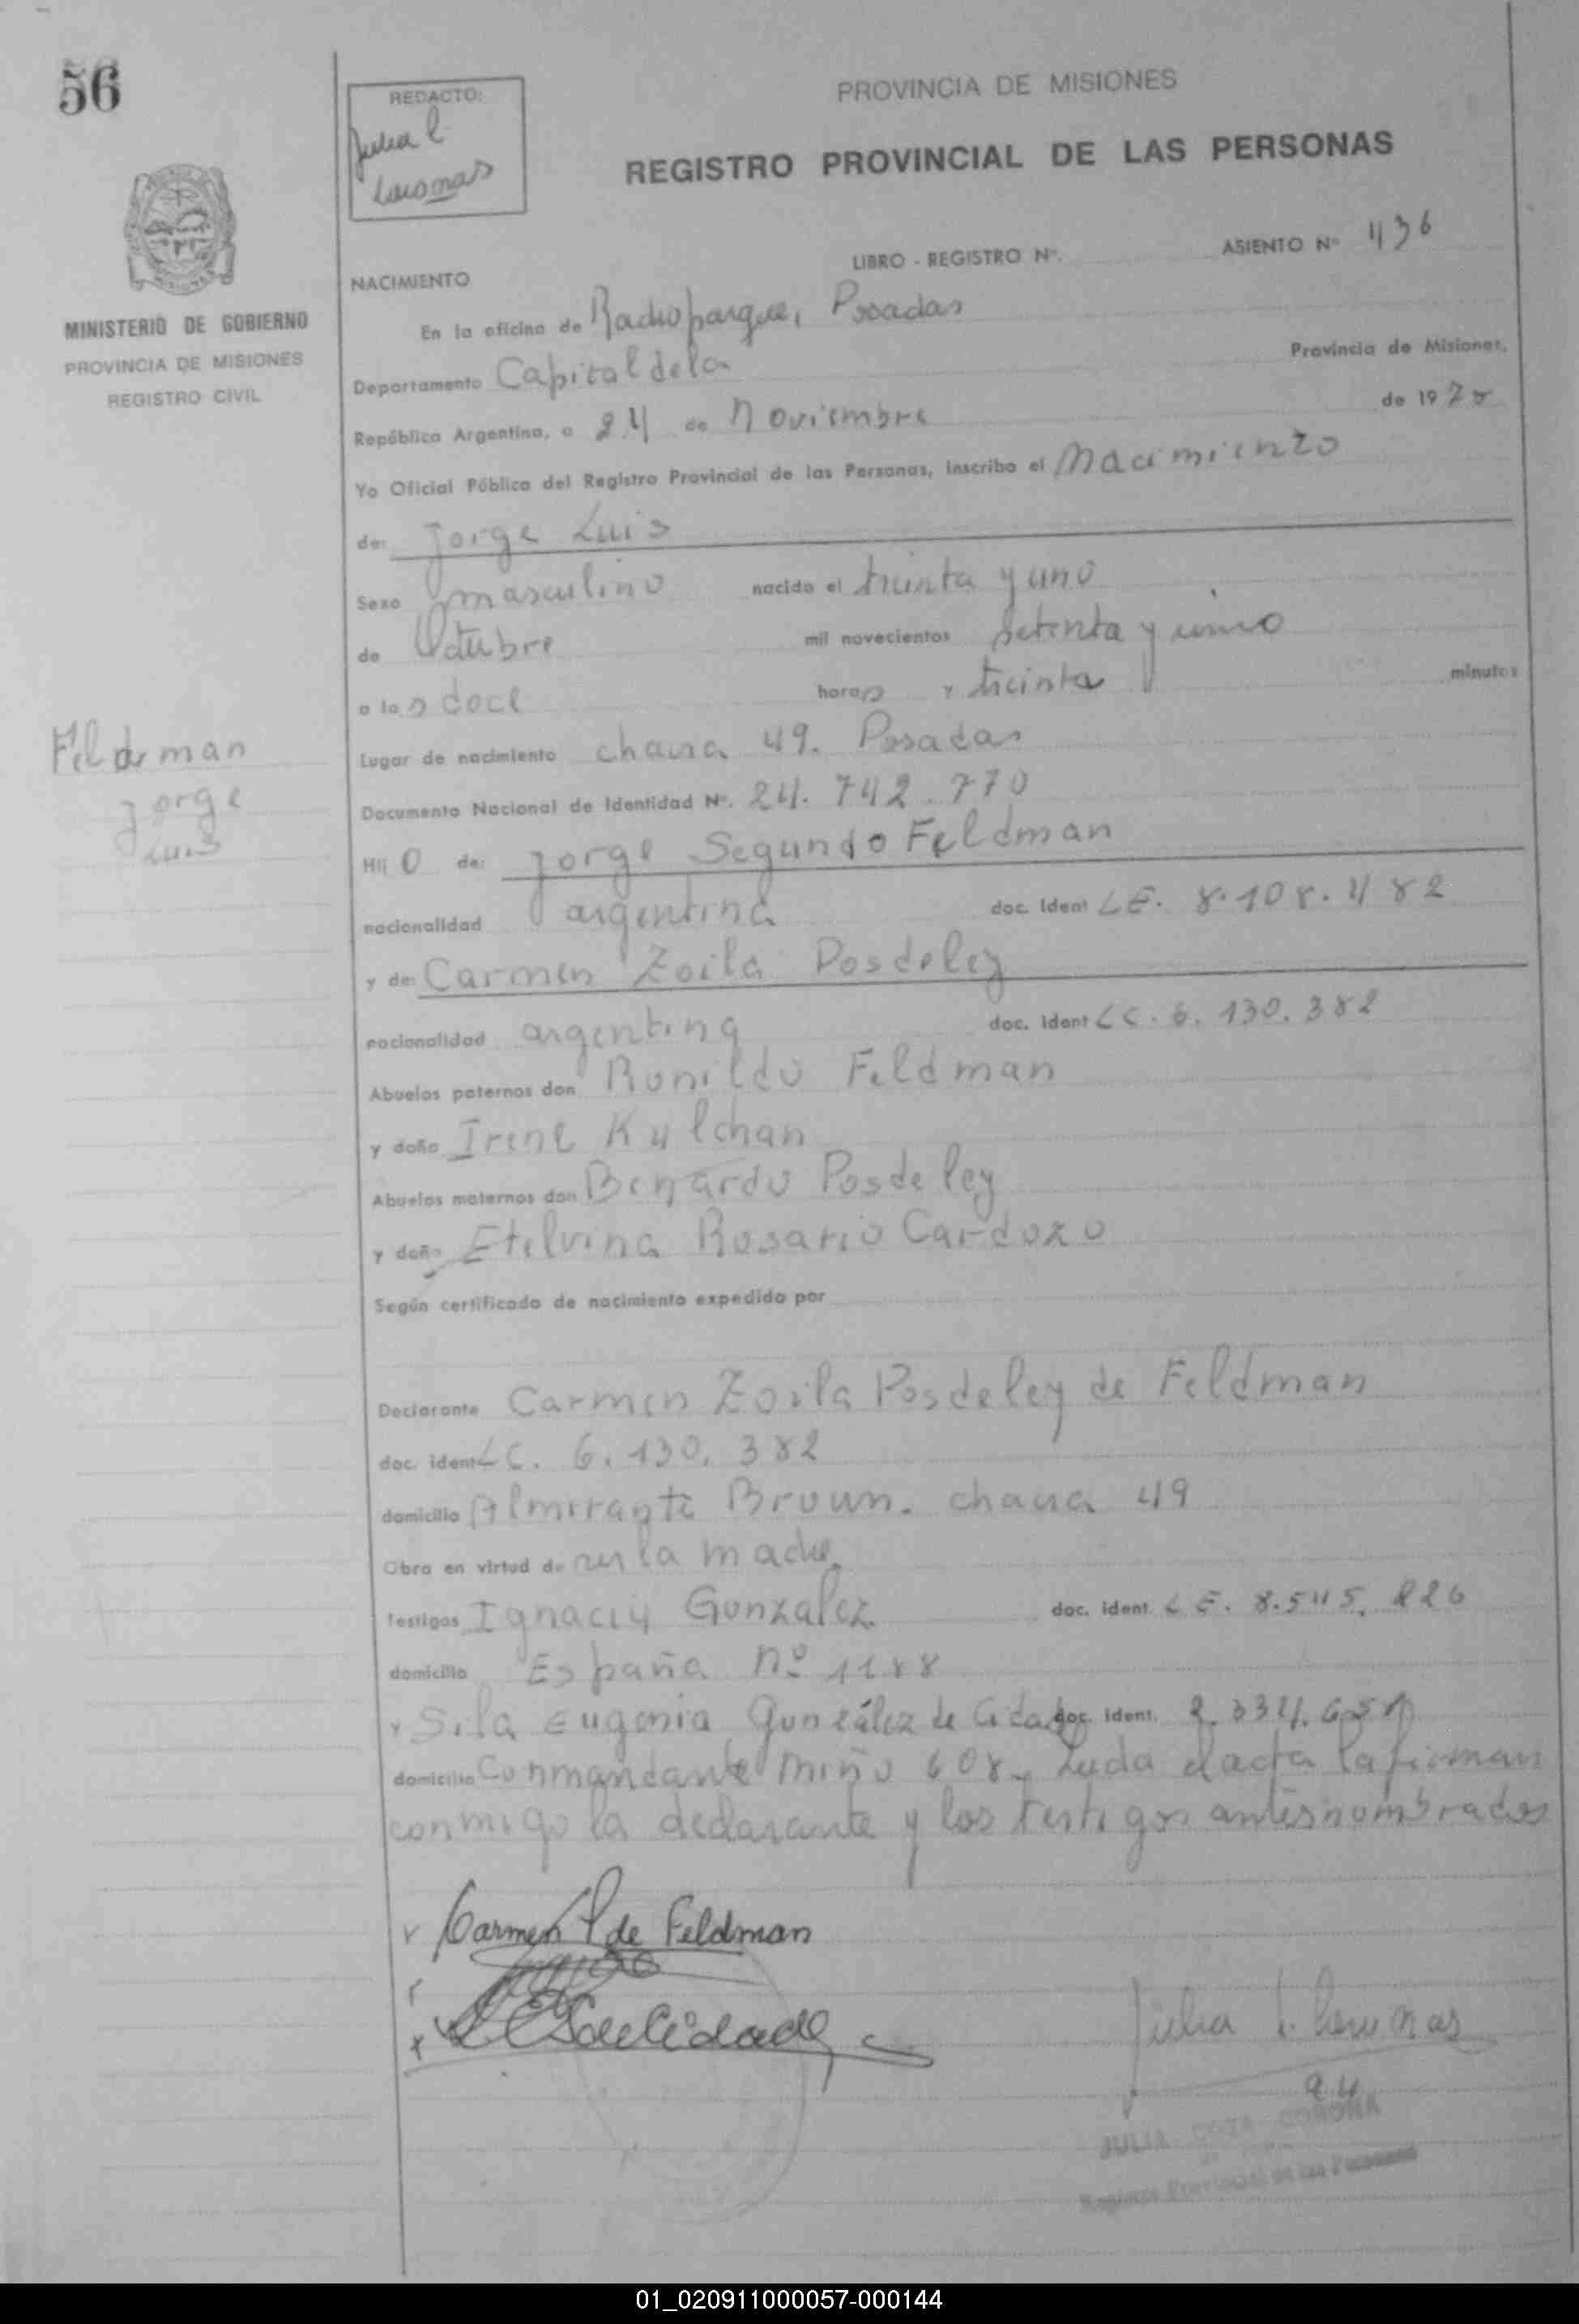 56
REDACTO:
Julia C.
PROVINCIA DE MISIONES
REGISTRO PROVINCIAL DE LAS PERSONAS
LIBRO - REGISTRO Nº. ASIENTO Nº 436
NACIMIENTO
MINISTERIO DE GOBIERNO
PROVINCIA DE MISIONES
REGISTRO CIVIL
En la oficina de Radioparque, Posadas
Departamento Capital de la Provincia de Misiones,
República Argentina, a 24 de Noviembre de 1975
Yo Oficial Público del Registro Provincial de las Personas, inscribo el Nacimiento
de: Jorge Luis
Sexo masculino nacido el treinta y uno
de Octubre mil novecientos setenta y cinco
a las doce horas y treinta minutos
Lugar de nacimiento chacra 49. Posadas
Feldman
Jorge
Luis
Documento Nacional de Identidad Nº. 24.742.770
Hijo de: Jorge Segundo Feldman
nacionalidad argentina doc. Ident LE. 8.108.482
y de: Carmen Zoila Posdeley
nacionalidad argentina doc. Ident LC. 6.130.382
Abuelos paternos don Ronildo Feldman
y doña Irene Kulchan
Abuelos maternos don Benardo Posdeley
y doña Etelvina Rosario Cardozo
Según certificado de nacimiento expedido por
Declarante Carmen Zoila Posdeley de Feldman
doc. ident LC. 6.130.382
domicilio Almirante Brown. chacra 49
Obra en virtud de ser la madre.
Testigos Ignaciy Gonzalez doc. ident. LE. 8.545.226
domicilio España nº 1188
y Sila Eugenia González de Cidade doc. ident. 2.334.651
domicilio Conmandante Miño 608. Leida el acta la firman
conmigo la declarante y los testigos antes nombrados
Carmen P de Feldman
Julia
JULIA CORONA
Registro Provincial de las Personas
01_020911000057-000144